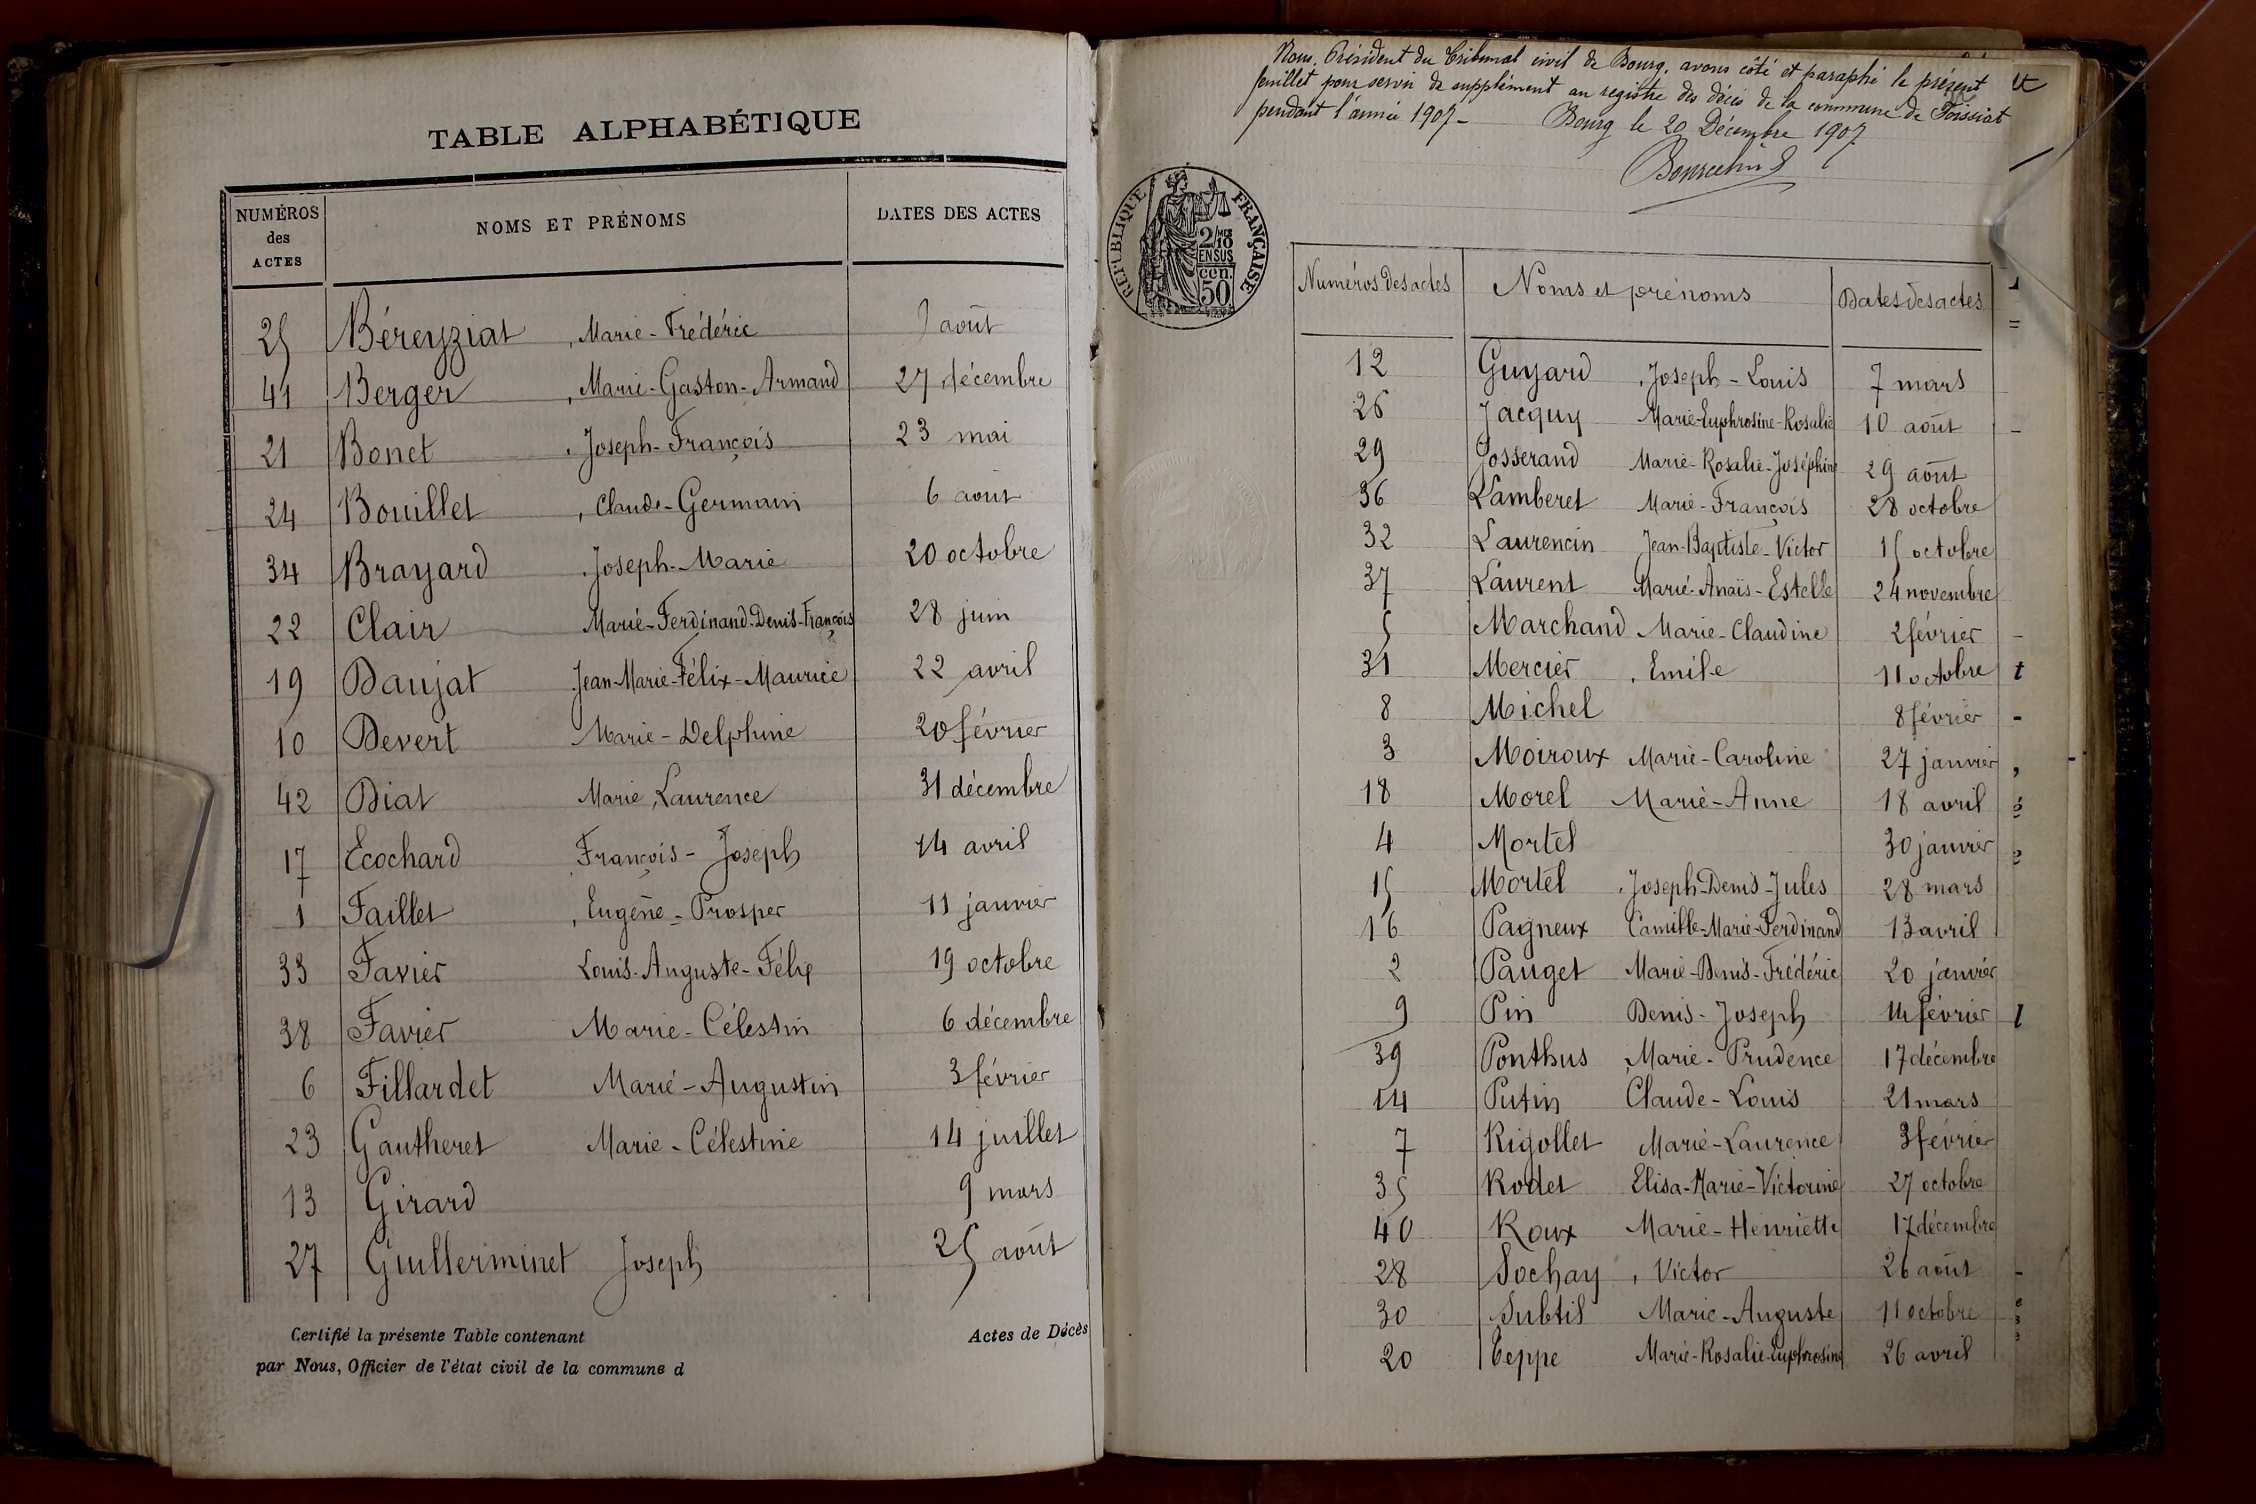 TABLE ALPHABÉTIQUE
NUMÉROS des ACTES NOMS ET PRÉNOMS DATES DES ACTES
25 Béreyziat, Marie-Frédéric 9 août
41 Berger, Marie-Gaston-Armand 27 décembre
21 Bonet, Joseph-François 23 mai
24 Bouillet, Claude-Germain 6 août
34 Brayard, Joseph-Marie 20 octobre
22 Clair Marie-Ferdinand-Denis-François 28 juin
19 Daujat Jean-Marie-Félix-Maurice 22 avril
10 Devert Marie-Delphine 20 février
42 Diat Marie Laurence 31 décembre
17 Ecochard François-Joseph 14 avril
1 Faillet, Eugène-Prosper 11 janvier
33 Favier Louis-Auguste-Félix 19 octobre
38 Favier Marie-Célestin 6 décembre
6 Fillardet Marie-Augustin 3 février
23 Gautheret Marie-Célestine 14 juillet
13 Girard 9 mars
27 Guillerminet Joseph 25 août
Certifié la présente Table contenant Actes de Décès
par Nous, Officier de l'état civil de la commune d
Nous, Président du Tribunal civil de Bourg, avons côté et paraphé le présent
feuillet pour servir de supplément au registre des décès de la commune de Foissiat
pendant l'année 1907-
Bourg le 20 Décembre 1907
RÉPUBLIQUE FRANÇAISE
2/10 MES
EN SUS
50 cen.
Numéros des actes Noms et prénoms Dates des actes
12 Guyard, Joseph-Louis 7 mars
26 Jacquy Marie-Euphrosine-Rosalie 10 août
29 Josserand Marie-Rosalie-Joséphine 29 août
36 Lamberet Marie-François 28 octobre
32 Laurencin Jean-Baptiste-Victor 15 octobre
37 Laurent Marie-Anaïs-Estelle 24 novembre
5 Marchand Marie-Claudine 2 février
31 Mercier, Emile 11 octobre
8 Michel 8 février
3 Moiroux Marie-Caroline 27 janvier
18 Morel Marie-Anne 18 avril
4 Mortel 30 janvier
15 Mortel, Joseph-Denis-Jules 28 mars
16 Pagneux Camille-Marie-Ferdinand 13 avril
2 Pauget Marie-Denis-Frédéric 20 janvier
9 Pin Denis-Joseph 14 février
39 Ponthus Marie-Prudence 17 décembre
14 Putin Claude-Louis 21 mars
7 Rigollet Marie-Laurence 3 février
35 Rodet Elisa-Marie-Victorine 27 octobre
40 Roux Marie-Henriette 17 décembre
28 Sochay, Victor 26 août
30 Subtil Marie-Auguste 11 octobre
20 Teppe Marie-Rosalie-Euphrosine 26 avril